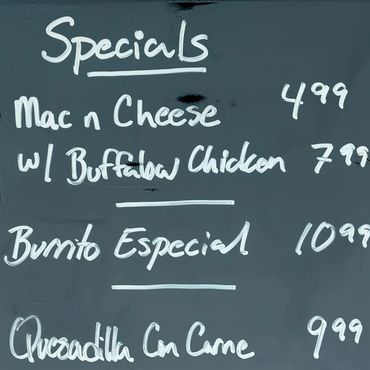 Specials
Mac n Cheese 4.99
w/ Buffalow Chicken 7.99
Burrito Especial 10.99
Quesadilla Con Carne 9.99